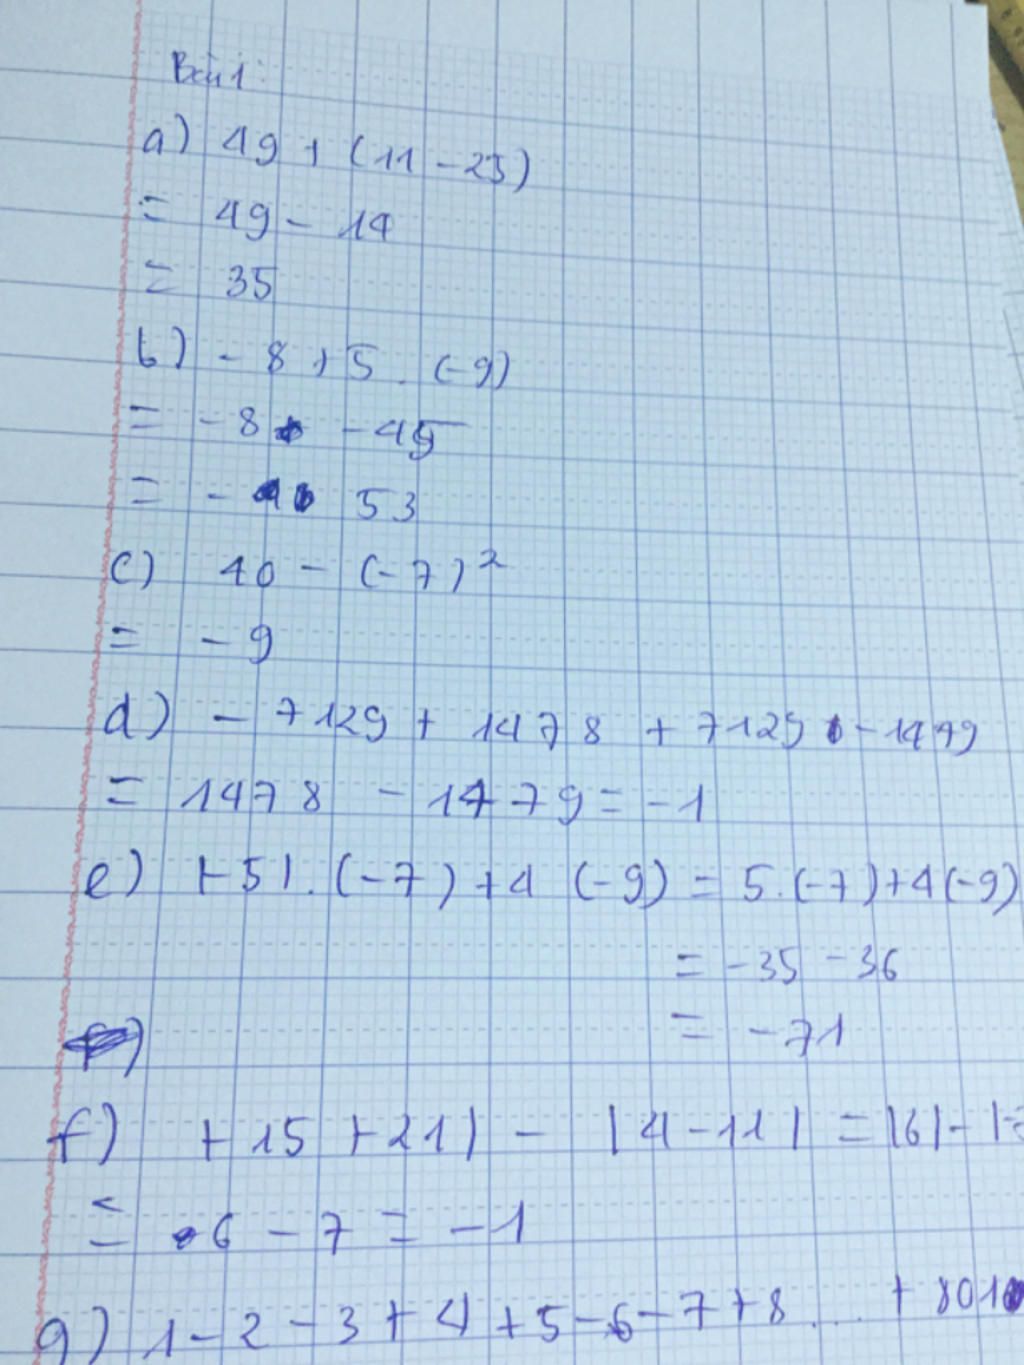 Bài 1:
a) 49 + (11 - 25)
= 49 - 14
= 35
b) - 8 + 5 . (-9)
= - 8 - 45
= - 53
c) 40 - (-7)²
= - 9
d) - 7129 + 1478 + 7129 - 1479
= 1478 - 1479 = -1
e) |-5| . (-7) + 4 (-9) = 5.(-7)+4(-9)
= -35 - 36
= -71
f) |-15 + 21| - |4 - 11| = |6| - |-
= 6 - 7 = -1
g) 1 - 2 - 3 + 4 + 5 - 6 - 7 + 8 .... + 801